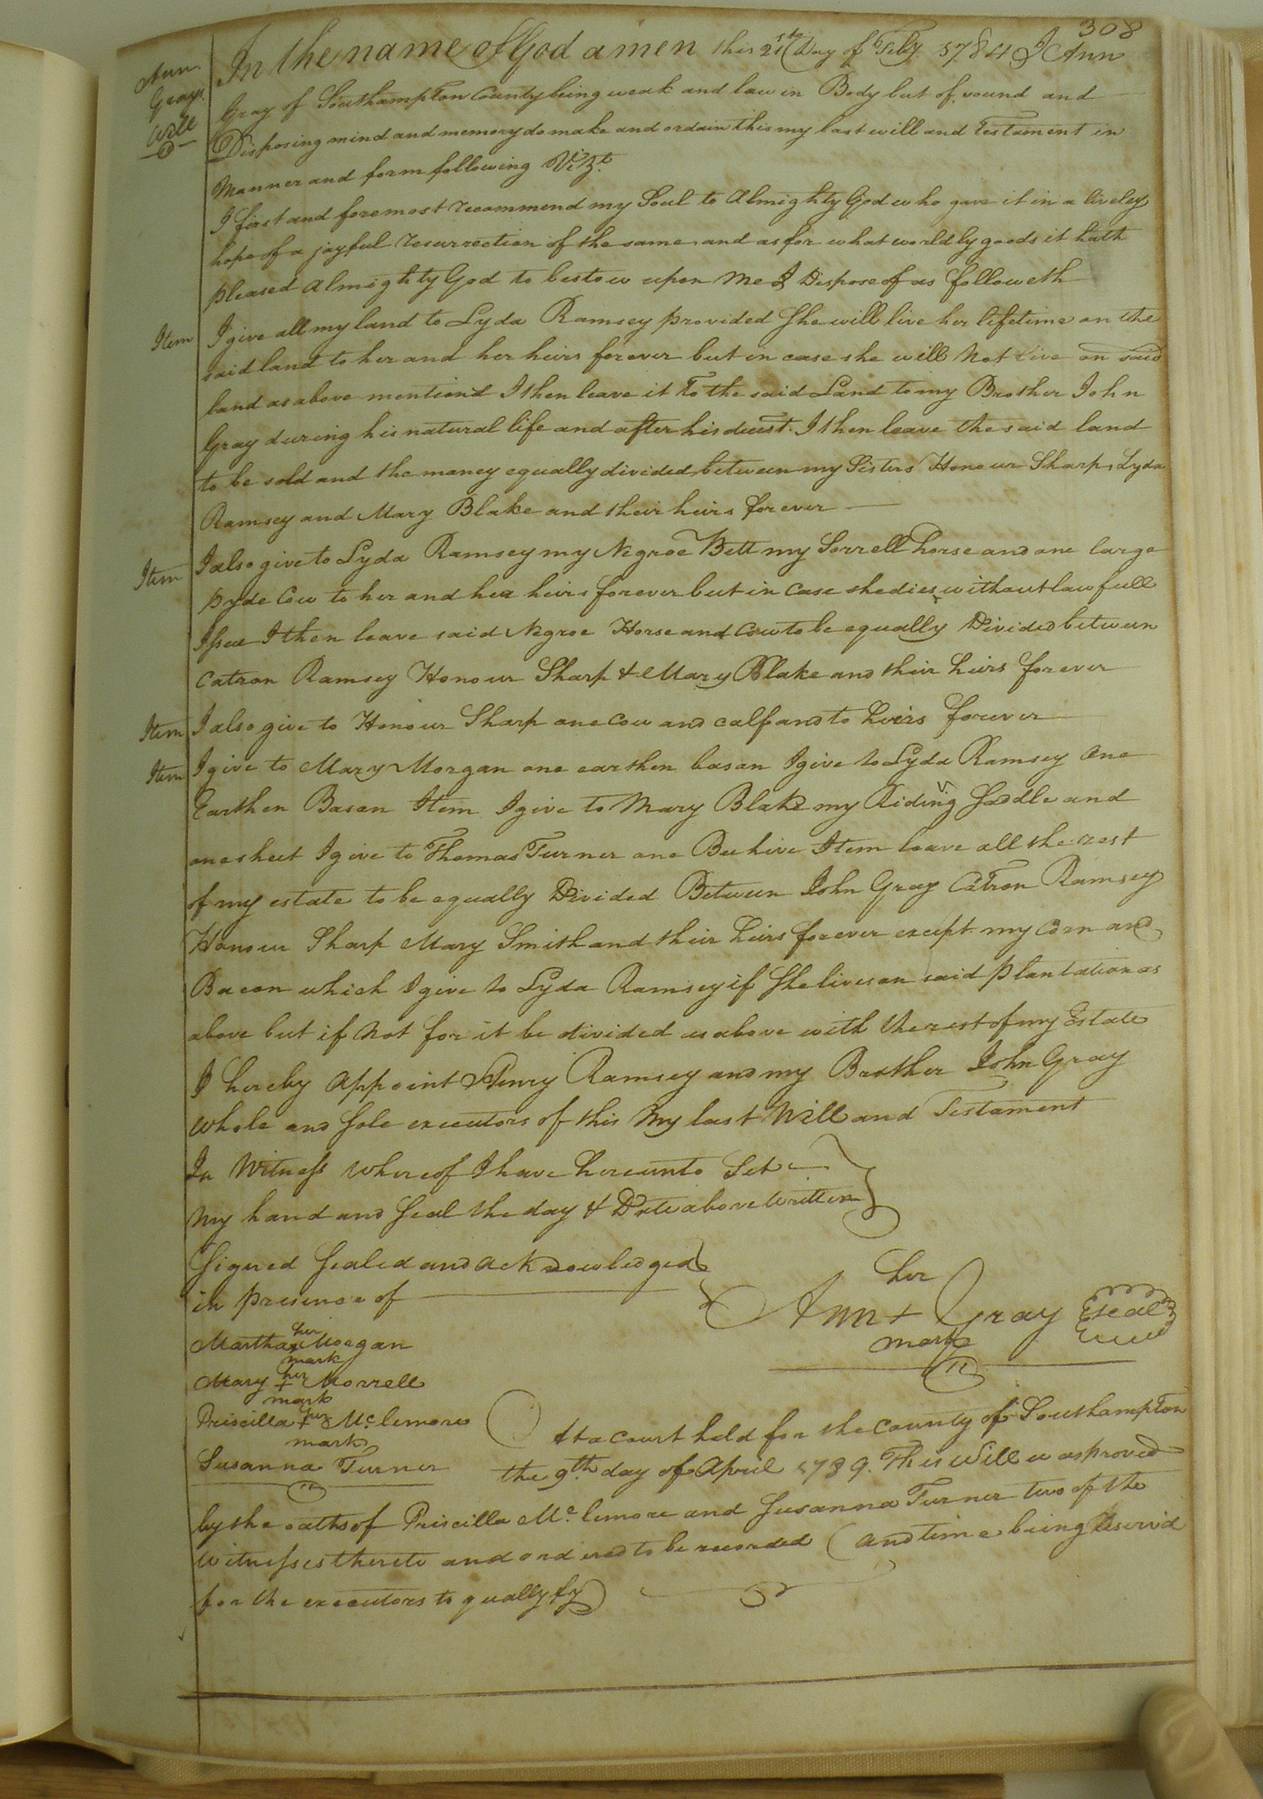 308
Ann
Grays
Will
In the name of God amen this 21st Day of Feby 1784 I Ann
Gray of Southampton County being weak and law in Body but of sound and
Disposing mind and memory do make and ordain this my last will and Testament in
Manner and form following Vizt.
I first and foremost recommend my Soul to Almighty God who gave it in a liveley
hope of a joyful resurrection of the same and as for what worldly goods it hath
pleased Almighty God to bestow upon me I Dispose of as followeth
Item I give all my land to Lyda Ramsey provided She will live her lifetime on the
said land to her and her heirs forever but in case she will Not live on said
land as above mentiond I then leave it To the said Land to my Brother John
Gray during his natural life and after his decest. I then leave the said land
to be sold and the money equally divided between my Sisters Honour Sharp, Lyda
Ramsey and Mary Blake and their heirs forever
Item I also give to Lyda Ramsey my Negroe Bett my Sorrell horse and one large
pyde Cow to her and her heirs forever but in case she dies without lawfull
Issue I then leave said Negroe Horse and Cow to be equally Divided between
Catron Ramsey Honour Sharp & Mary Blake and their heirs forever
Item I also give to Honour Sharp one cow and calf and to heirs forever
Item I give to Mary Morgan one earthen basan I give to Lyda Ramsey one
Earthen Basan Item I give to Mary Blake my Riding Saddle and
one sheet I give to Thomas Turner one Bee hive Item leave all the rest
of my estate to be equally Divided Between John Gray Catron Ramsey
Honour Sharp Mary Smith and their heirs forever except my Corn and
Bacon which I give to Lyda Ramsey if She lives on said plantation as
above but if Not for it be divided as above with the rest of my Estate
I hereby Appoint Henry Ramsey and my Brother John Gray
whole and Sole executors of this My last Will and Testament
In Witness whereof I have hereunto Set
My hand and Seal the day & Date above written
Signed Sealed and acknowledged
in presence of
her
Ann + Gray Seal
mark
her
Martha x Morgan
mark
her
Mary + Morrell
mark
Priscilla her + Mc.lemore
mark
Susanna Turner
At a court held for the county of Southampton
the 9th day of April 1789. This Will was proved
by the oaths of Priscilla Mc.lemore and Susanna Turner two of the
witnesses thereto and ordered to be recorded (and time being Reserv'd
for the executors to qually fy)